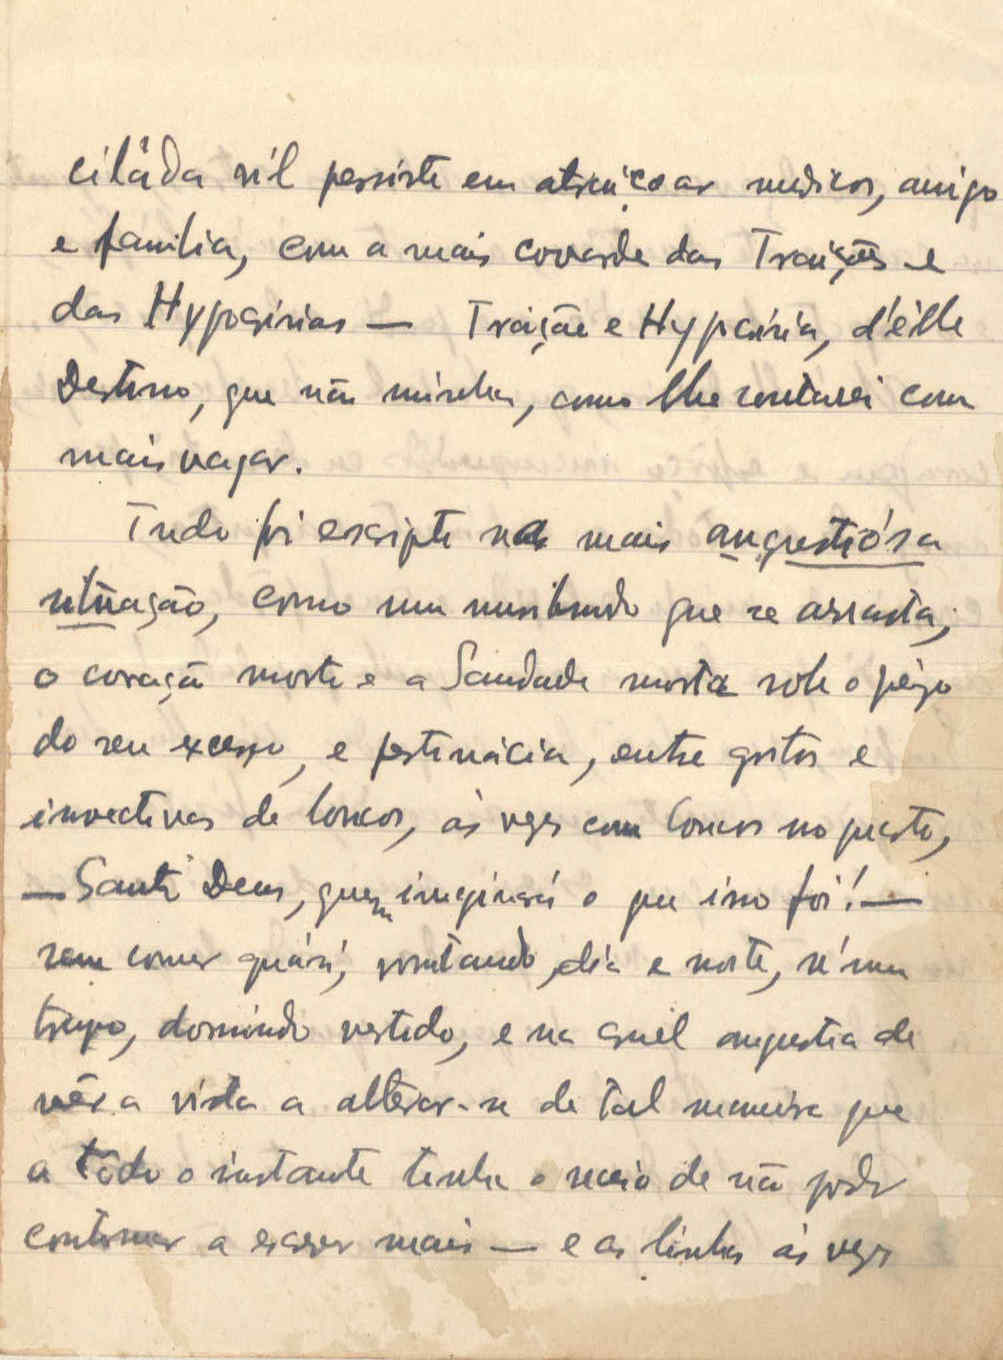 ciláda vil persiste em atraiçoar medicos, amigo
e familia, com a mais covarde das Traições e
das Hypocrisias — Traição e Hypocrisia, d'élle
Destino, que não minha, como lhe contarei com
mais vagar.
Tudo foi escripto na mais angustiósa
situação, como um muribundo que se arrasta,
o coração morto e a Saudade morta sob o pêzo
do seu excesso, e pertinácia, entre gritos e
invectivas de loucos, ás vezes com loucos no quarto,
— Santo Deus, quem imaginará o que isso foi! —
sem comer quási, vomitando, dia e noite, n'um
trapo, dormindo vestido, e na cruel angustia de
vêr a vista a alterar-se de tal maneira que
a tôdo o instante tenho o receio de não poder
continuar a escrever mais — e as linhas ás vezes